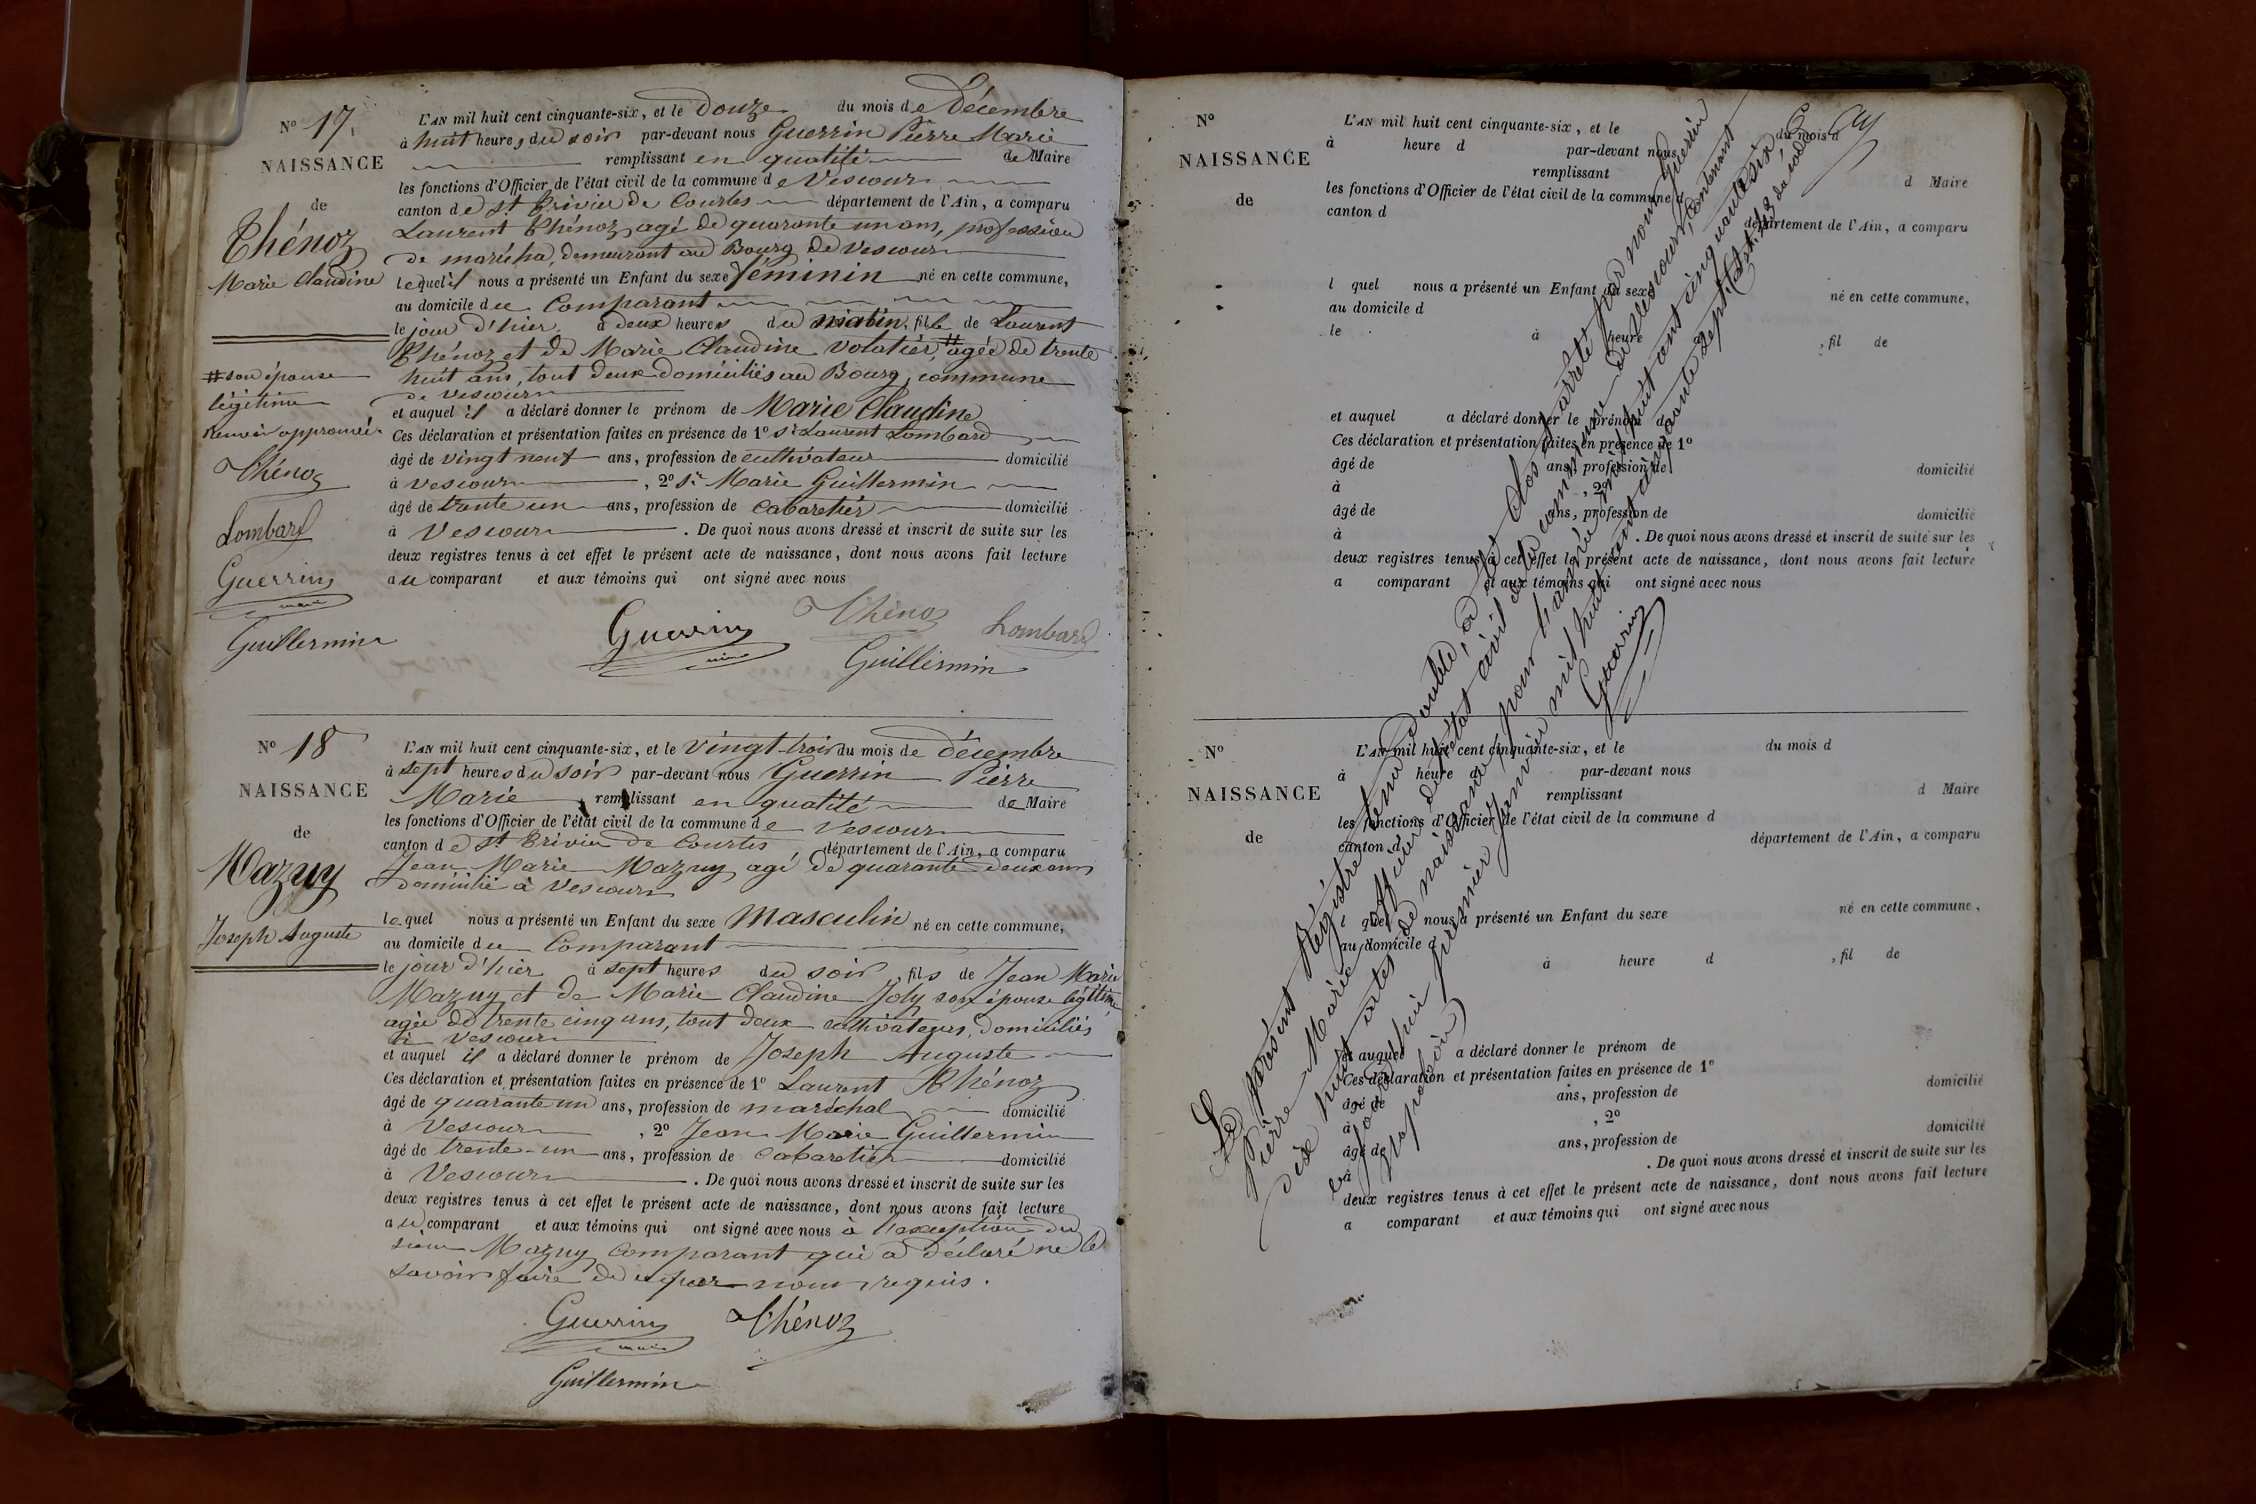 N° 17.
NAISSANCE
de
Thénoz
Marie Claudine
# son épouse
légitime
Renvoi approuvé
Thénoz
Lombard
Guerrin
maire
Guillermin
L'AN mil huit cent cinquante-six, et le douze du mois de Décembre
à huit heures du soir par-devant nous Guerrin Pierre Marie
remplissant en qualité de Maire
les fonctions d'Officier de l'état civil de la commune de Vescour
canton de St Trivier de Courtes département de l'Ain, a comparu
Laurent Thénoz agé de quarante un ans, profession
de marécha, demeurant au Bourg de Vescour
lequel il nous a présenté un Enfant du sexe féminin né en cette commune,
au domicile du Comparant
le jour d'hier à deux heures du matin, fille de Laurent
Thénoz et de Marie Claudine Volatier, # agée de trente
huit ans, tout deux domiciliés au Bourg, commune
de Vescour
et auquel il a déclaré donner le prénom de Marie Claudine
Ces déclaration et présentation faites en présence de 1° Sr Laurent Lombard
âgé de vingt neuf ans, profession de cultivateur domicilié
à Vescour, 2° Sr Marie Guillermin
âgé de trente un ans, profession de Cabaretier domicilié
à Vescour. De quoi nous avons dressé et inscrit de suite sur les
deux registres tenus à cet effet le présent acte de naissance, dont nous avons fait lecture
au comparant et aux témoins qui ont signé avec nous
Guerrin Thénoz Lombard
maire
Guillermin
N° 18
NAISSANCE
de
Mazuy
Joseph Auguste
L'AN mil huit cent cinquante-six, et le vingt trois du mois de décembre
à sept heures du soir par-devant nous Guerrin Pierre
Marie remplissant en qualité de Maire
les fonctions d'Officier de l'état civil de la commune de Vescour
canton de St Trivier de Courtes département de l'Ain, a comparu
Jean Marie Mazuy agé de quarante deux ans
domicilié à Vescour
lequel nous a présenté un Enfant du sexe Masculin né en cette commune,
au domicile du Comparant
le jour d'hier à sept heures du soir, fils de Jean Marie
Mazuy et de Marie Claudine Joly son épouse légitime
agée de trente cinq ans, tout deux cultivateurs, domiciliés
à Vescour
et auquel il a déclaré donner le prénom de Joseph Auguste
Ces déclaration et présentation faites en présence de 1° Laurent Thénoz
âgé de quarante un ans, profession de maréchal domicilié
à Vescour, 2° Jean Marie Guillermin
âgé de trente-un ans, profession de Cabaretier domicilié
à Vescour. De quoi nous avons dressé et inscrit de suite sur les
deux registres tenus à cet effet le présent acte de naissance, dont nous avons fait lecture
au comparant et aux témoins qui ont signé avec nous à l'exception du
sieur Mazuy comparant qui a déclaré ne le
savoir faire de ce par nous requis.
Guerrin Thénoz
maire
Guillermin
N°
NAISSANCE
de
L'AN mil huit cent cinquante-six, et le du mois d
à heure d par-devant nous
remplissant d Maire
les fonctions d'Officier de l'état civil de la commune d
canton d département de l'Ain, a comparu
l quel nous a présenté un Enfant du sexe né en cette commune,
au domicile d
le à heure d, fil de
et auquel a déclaré donner le prénom de
Ces déclaration et présentation faites en présence de 1°
âgé de ans, profession de domicilié
à, 2°
âgé de ans, profession de domicilié
à. De quoi nous avons dressé et inscrit de suite sur les
deux registres tenus à cet effet le présent acte de naissance, dont nous avons fait lecture
a comparant et aux témoins qui ont signé avec nous
Le présent Régistre tenu double, a été Clos et arrêté par nous Guerrin
Pierre Marie Officier de l'état civil de la commune de Vescour, Contenant
dix huit actes de naissance, pour l'année mil huit cent cinquante six,
aujourd'hui premier Janvier mil huit cent cinquante sept. (art. 43 du code
Napoléon)
Guerrin
N°
NAISSANCE
de
L'AN mil huit cent cinquante-six, et le du mois d
à heure d par-devant nous
remplissant d Maire
les fonctions d'Officier de l'état civil de la commune d
canton d département de l'Ain, a comparu
l quel nous a présenté un Enfant du sexe né en cette commune,
au domicile d
à heure d, fil de
et auquel a déclaré donner le prénom de
Ces déclaration et présentation faites en présence de 1°
âgé de ans, profession de domicilié
à, 2°
âgé de ans, profession de domicilié
à. De quoi nous avons dressé et inscrit de suite sur les
deux registres tenus à cet effet le présent acte de naissance, dont nous avons fait lecture
a comparant et aux témoins qui ont signé avec nous